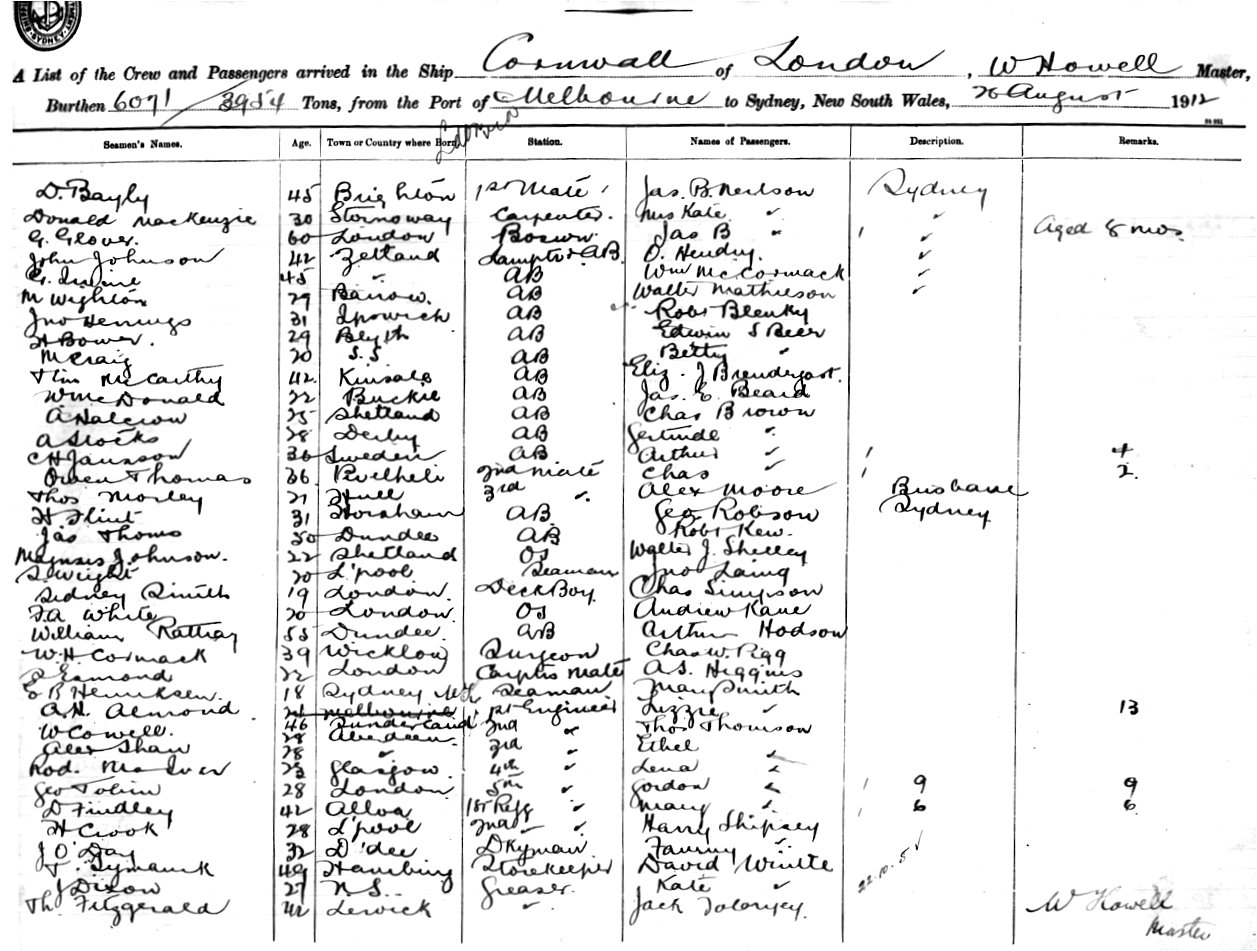 SYDNEY
A List of the Crew and Passengers arrived in the Ship Cornwall of London, W Howell Master,
Burthen 6071/3954 Tons, from the Port of Melbourne to Sydney, New South Wales, 26 August 1912
Seamen's Names. Age. Town or Country where Born Station. Names of Passengers. Description. Remarks.
D. Bayly 45 Brighton 1st Mate Jas. B. Neilson Sydney
Donald MacKenzie 30 Stornoway Carpenter. Mrs Kate "
G. Glover. 60 London Bosun. Jas B " 1 " Aged 8 mos.
John Johnson 42 Zetland Lamptr & AB. O. Hendry. "
G. Irvine 45 " AB Wm McCormack "
M Wighton 29 Barrow. AB Walter Mathieson "
Jno Hennings 31 Ipswich AB Robt Blenky
H Bower. 29 Blyth AB Edwin S Beer
M Craig 20 S.S AB Betty "
Tim McCarthy 42 Kinsale AB Eliz. J Brendergast.
W McDonald 22 Buckie AB Jas. E. Beard
A Halcrow 25 Shetland AB Chas Brown
A Stocks 28 Derby AB Gertrude "
CH Jansson 36 Sweden AB Arthur " 1 4
Owen Thomas 36 Pwllheli 2nd Mate Chas " 1 2.
Thos Morley 21 Hull 3rd " Alex Moore Brisbane
H Flint 31 Horsham AB Geo Robson Sydney
Jas Thoms 50 Dundee AB Robt Kew.
Magnus Johnson. 22 Shetland OS Walter J. Shelley
S Wright 20 L'pool Seaman Jno Laing
Sidney Smith 19 London. Deck Boy Chas Simpson
F.A White 20 London. OS Andrew Kane
William Rattray 55 Dundee. AB Arthur Hodson
W.H. Cormack 39 Wicklow Surgeon Chas W. Rigg
Esmond 22 London Carptrs Mate A.S. Higgins
E B Henriksen. 18 Sydney Seaman Mary Smith
A.H. Almond Melbourne 1st Engineer Lizzie " 13
W Cowell. 46 Sunderland 2nd " Thos Thomson
Alex Shaw 28 Aberdeen. 3rd " Ethel "
Rod. MacIver 23 Glasgow. 4th " Lena "
Geo Tobin 28 London. 5th " Gordon " 1 9 9
D Findley 42 Alloa 1st Refg " Mary " 1 6 6
H Crook 28 L'pool 2nd " " Harry Shipsey
J O'Day 32 D'dee Dkyman Fanny "
Szymanik 49 Hamburg Storekeeper David Winte
J Dixon 27 N.S. Greaser. Kate "
Th. Fitzgerald 42 Lerwick " Jack
22.10.5
W Howell
Master